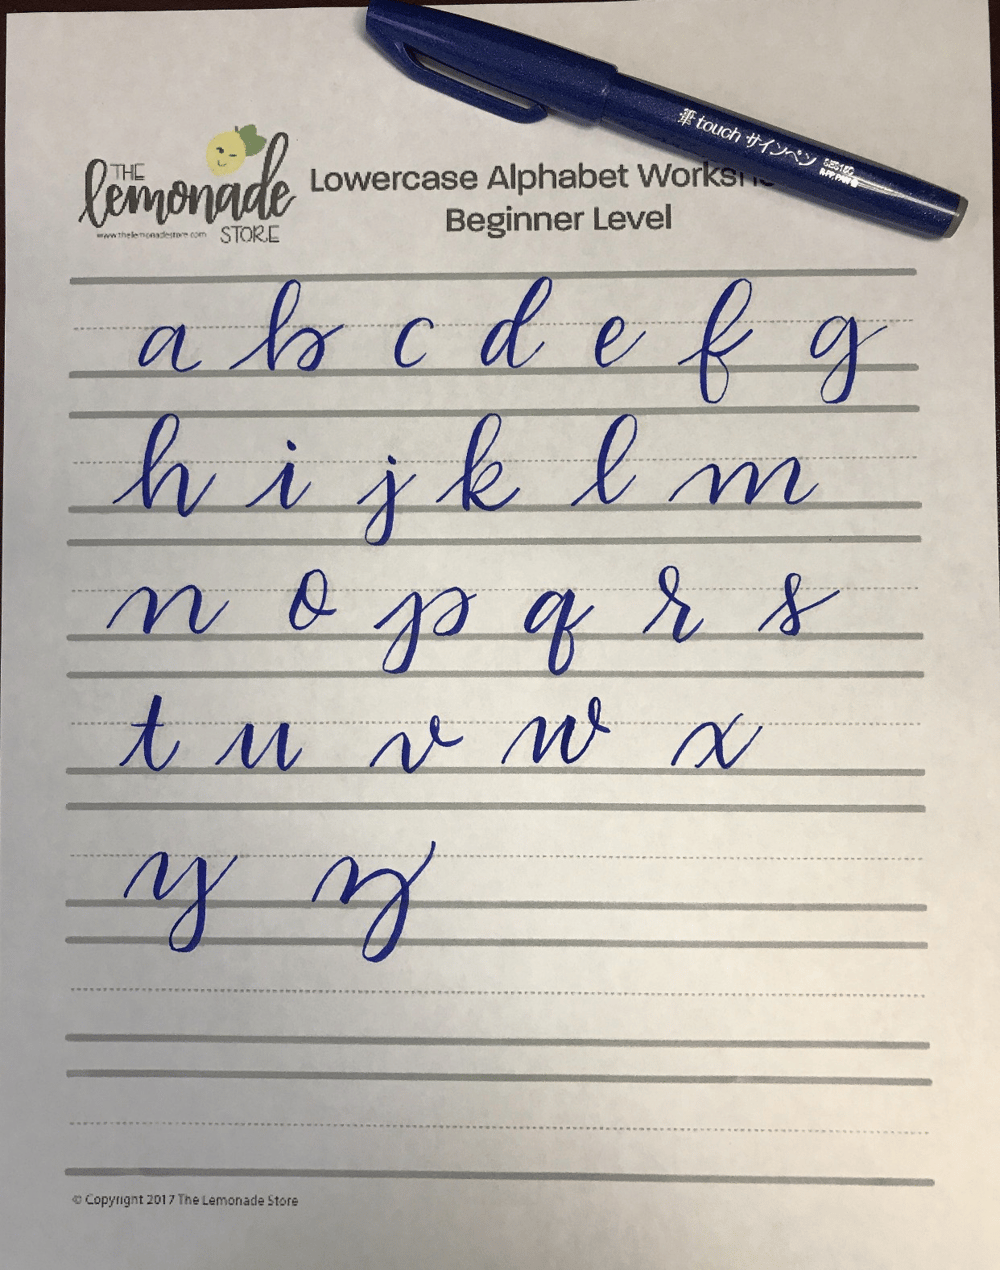 筆touch サインペン
THE
lemonade
STORE
www.thelemonadestore.com
Lowercase Alphabet
Beginner Level
a b c d e f g
h i j k l m
n o p q r s
t u v w x
y z
© Copyright 2017 The Lemonade Store